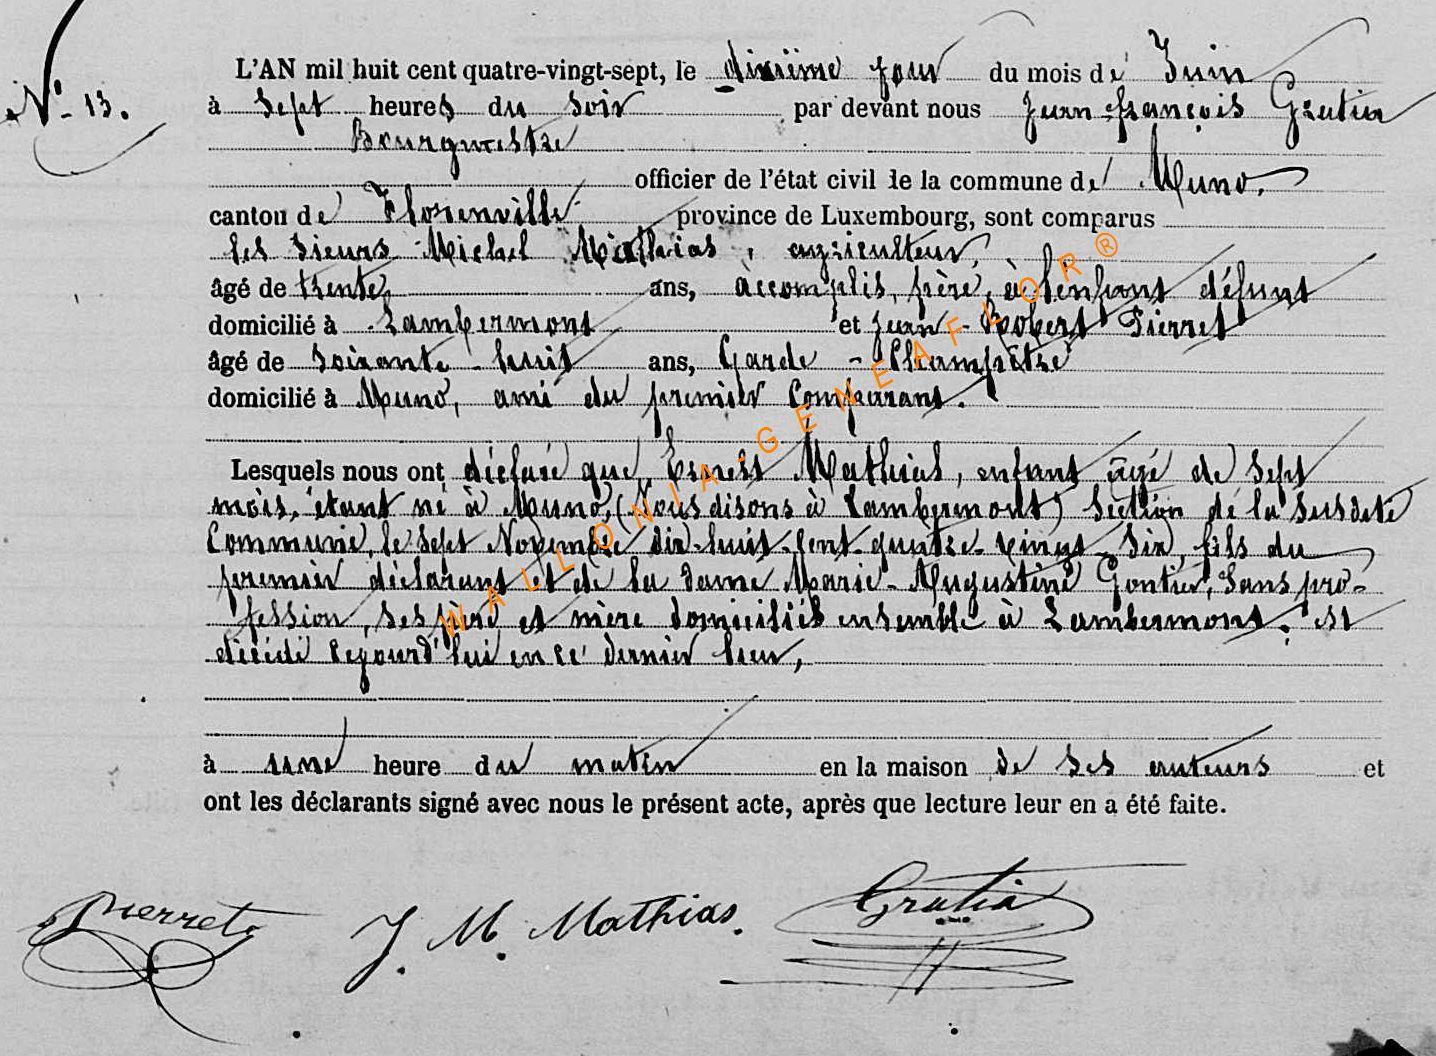 N° 13.
L'AN mil huit cent quatre-vingt-sept, le dixième jour du mois de Juin
à Sept heures du soir par devant nous Jean-françois Gratia
Bourgmestre
officier de l'état civil de la commune de Muno,
canton de Florenville province de Luxembourg, sont comparus
les sieurs Michel Mathias, agriculteur,
âgé de trente ans, accomplis, père, à l'enfant défunt
domicilié à Lambermont et Jean-Robert Pierret
âgé de soixante-huit ans, Garde-Champêtre
domicilié à Muno, ami du premier Comparant.
Lesquels nous ont déclaré que, Ernest Mathias, enfant âgé de Sept
mois, étant né à Muno, (Nous disons à Lambermont) Section de la susdite
Commune, le Sept Novembre dix-huit-cent-quatre-vingt-Six, fils du
premier déclarant et de la dame Marie-Augustine Gontier, Sans pro-
fession, ses père et mère domiciliés ensemble à Lambermont, est
décédé cejourd'hui en ce dernier lieu,
à une heure du matin en la maison de ses auteurs et
ont les déclarants signé avec nous le présent acte, après que lecture leur en a été faite.
Pierret J. M. Mathias. Gratia
WALLONIA-GENEAFLOR®